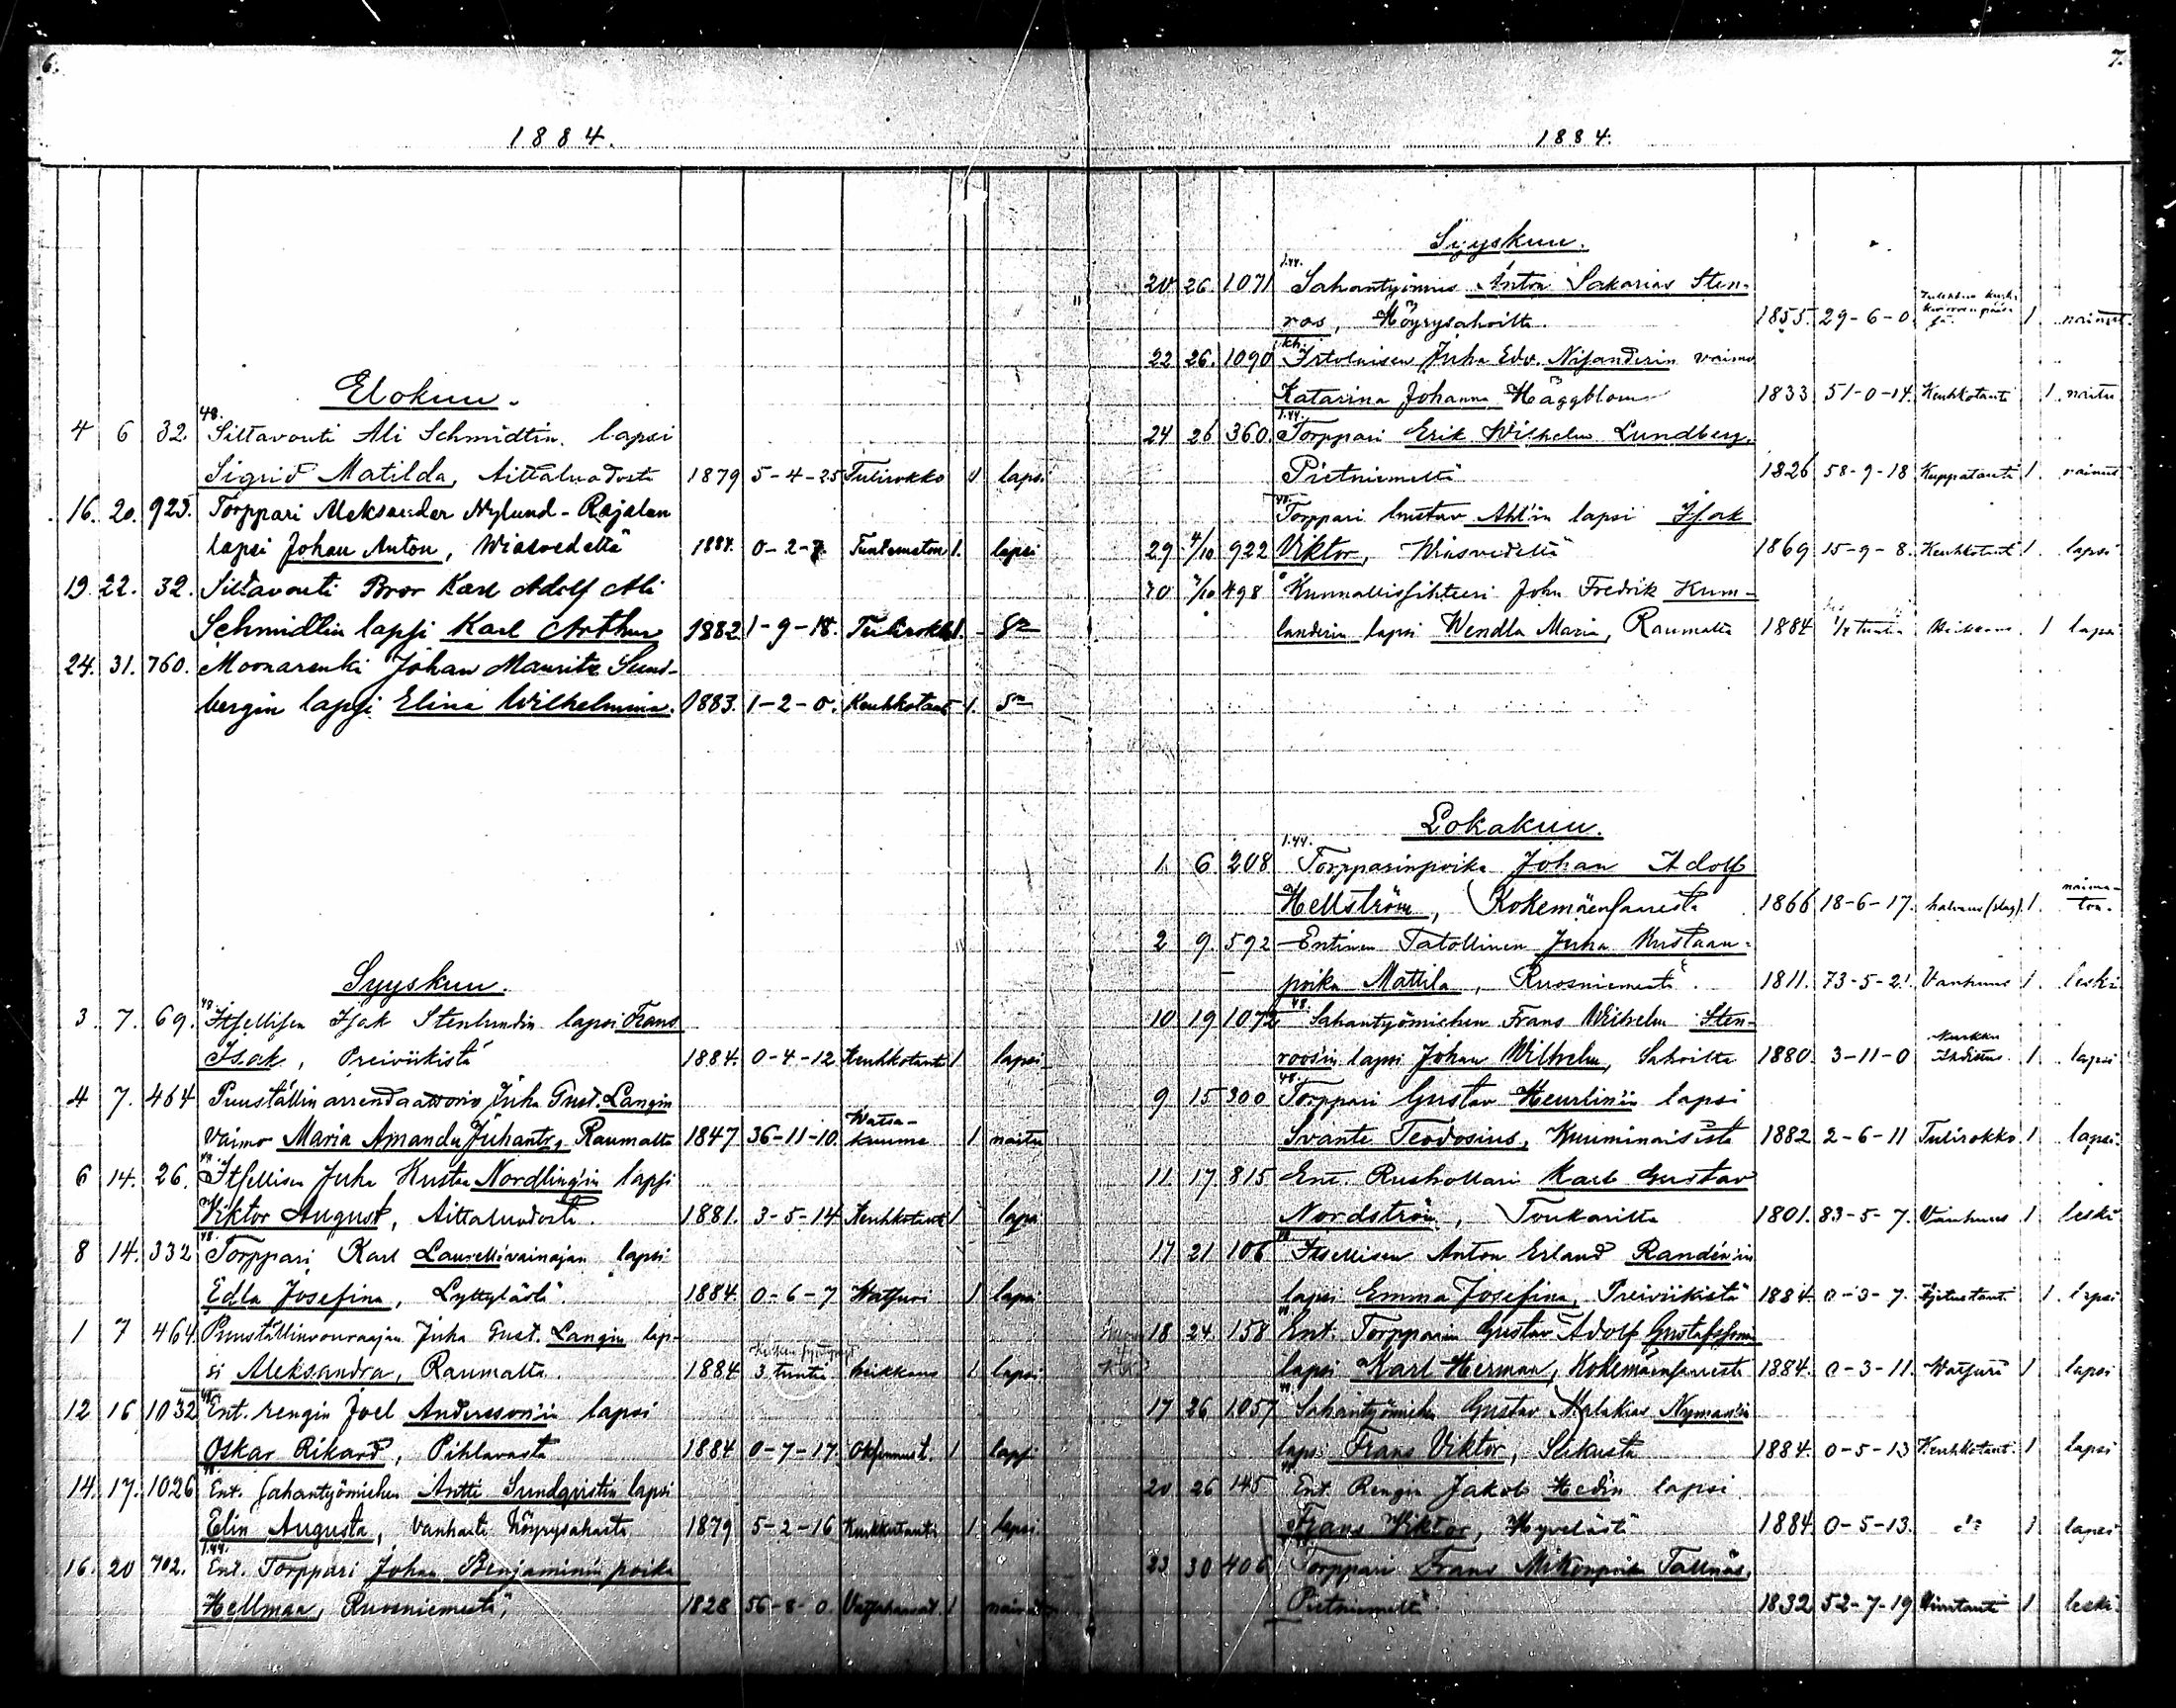 6.
1884.
Elokuu.
48.
4 6 32. Siltavouti Ali Schmidtin lapsi
Sigrid Matilda, Aittaluodosta 1879 5-4-25 Tulirokko 1 lapsi
16. 20. 925. Torppari Aleksander Nylund-Rajalan
lapsi Johan Anton, Wiasvedeltä 1884. 0-2-7. Tuntematon 1. lapsi
19. 22. 32. Siltavouti Bror Karl Adolf Ali
Schmidtin lapsi Karl Arthur 1882 1-9-18. Tulirokko 1.
24. 31. 760. Moonarenki Johan Mauritz Sund-
bergin lapsi Elina Wilhelmina. 1883. 1-2-0. Keuhkotauti 1.
Syyskuu.
48
3. 7. 69. Itsellisen Isak Stenlundin lapsi Frans
Isak, Preiviikistä 1884. 0-4-12 Keuhkotauti 1 lapsi
4 7. 464 Puuställin arrendaattorin Juha Gust. Langin
Watsa-
vaimo Maria Amanda Juhantr, Raumalta 1847 36-11-10. kuume 1 naitu
6 14. 26. Itsellisen Juha Kustaa Nordling'in lapsi
Viktor August, Aittaluodosta. 1881. 3-5-14 Keuhkotauti 1 lapsi
8 14. 332 Torppari Karl Laurell vainajan lapsi
Edla Josefina, Lyttylästä. 1884. 0-6-7 Watsuri 1 lapsi
1 7 464. Puuställinvouraajan Juha Gust. Langin lap-
si Aleksandra, Raumalta. 1884 3 tuntia heikkous 1 lapsi
48
12 16 1032 Ent. rengin Joel Andersson'in lapsi
Oskar Rikard, Pihlavasta 1884 0-7-17. 1 lapsi
14. 17. 1026 Ent. sahantyömiehen Antti Sundqvistin lapsi
Elin Augusta, Vanhasta Höyrysahasta 1879 5-2-16 Kurkkutauti 1 lapsi
1.44.
16. 20 702. Ent. Torppari Johan Benjamininpoika
Hellman, Ruosniemestä, 1828 56-8-0. 1
7.
1884.
Syyskuu.
1.44.
20 26. 1071 Sahantyömies Anton Sakarias Sten-
ros, Höyrysahoilta. 1855. 29-6-0. 1. nainut
kh.
22 26. 1090 Itsellisen Juha Edv. Nisanderin vaimo
Katarina Johanna Häggblom 1833 51-0-14. Keuhkotauti 1 naitu
1.44.
24 26 360. Torppari Erik Wilhelm Lundberg.
Pietniemeltä 1826 58-9-18 Kuppatauti 1. nainut
48.
Torppari Gustav Ahl'in lapsi Isak
29. 4/10 922 Viktor, Wiasvedeltä 1869 15-9-8. Keuhkotauti 1. lapsi
498 Kunnallissihteeri John Fredrik Kum-
landerin lapsi Wendla Maria, Raumalta 1884 Heikkous. 1 lapsi
Lokakuu.
1.44.
1. 6 208 Torpparinpoika Johan Adolf
naima-
Hellström, Kokemäensaaresta 1866 18-6-17. halvaus (slag). 1. ton.
2 9. 592 Entinen Talollinen Juha Kustaan-
poika Mattila, Ruosniemestä. 1811. 73-5-21. Vanhuus 1. leski.
48
10 19 1072 Sahantyömiehen Frans Wilhelm Sten-
Kurkku
roos'in lapsi Johan Wilhelm, Sahoilta 1880. 3-11-0 1. lapsi
48.
9 15 300 Torppari Gustav Heurlin'in lapsi
Svante Teodosius, Kuuminaisista 1882 2-6-11 Tulirokko 1 lapsi.
11. 17 815 Ent. Rushollari Karl Gustav
Nordström, Toukarilta 1801. 83-5-7. Vanhuus 1 leski
17 21 106 Itsellisen Anton Erland Randén'in
lapsi Emma Josefina, Preiviikistä 1884. 0-3-7. 1. lapsi
18 24. 158 Ent. Torpparin Gustav Adolf Gustafssonin
lapsi Karl Herman, Kokemäensaaresta 1884. 0-3-11. Watsuri 1 lapsi
17 26 1057 Sahantyömiehen Gustav Malakias Nyman'in
lapsi Frans Viktor, Seikusta 1884. 0-5-13 Keuhkotauti 1 lapsi
20 26 145 Ent. Rengin Jakob Hedin lapsi
Frans Viktor, Hyvelästä 1884 0-5-13. d:o 1 lapsi
23 30 406 Torppari Frans Mikonpoika Tallnäs,
Pietniemeltä. 1832 52-7-19 1 leski